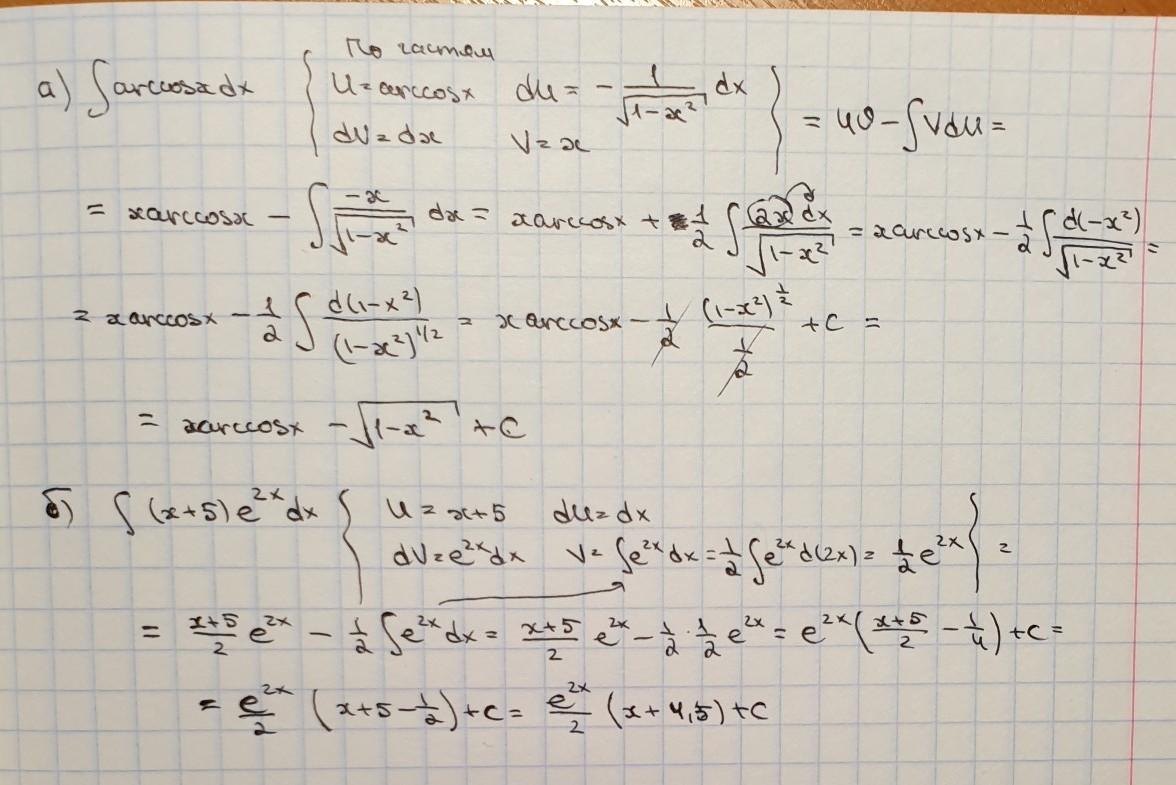 По частям
а) ∫arccosx dx { u = arccosx du = - 1/√(1-x²) dx
dv = dx v = x } = uv - ∫vdu =
= xarccosx - ∫ -x/√(1-x²) dx = xarccosx + 1/2 ∫ (2x)dx/√(1-x²) = xarccosx - 1/2 ∫ d(-x²)/√(1-x²) =
= xarccosx - 1/2 ∫ d(1-x²)/(1-x²)^(1/2) = xarccosx - 1/2 (1-x²)^(1/2)/(1/2) + C =
= xarccosx - √(1-x²) + C
б) ∫ (x+5)e^(2x) dx { u = x+5 du = dx
dv = e^(2x)dx v = ∫e^(2x) dx = 1/2 ∫e^(2x) d(2x) = 1/2 e^(2x) } =
= (x+5)/2 e^(2x) - 1/2 ∫e^(2x) dx = (x+5)/2 e^(2x) - 1/2 · 1/2 e^(2x) = e^(2x) ((x+5)/2 - 1/4) + C =
= e^(2x)/2 (x+5-1/2) + C = e^(2x)/2 (x+4,5) + C